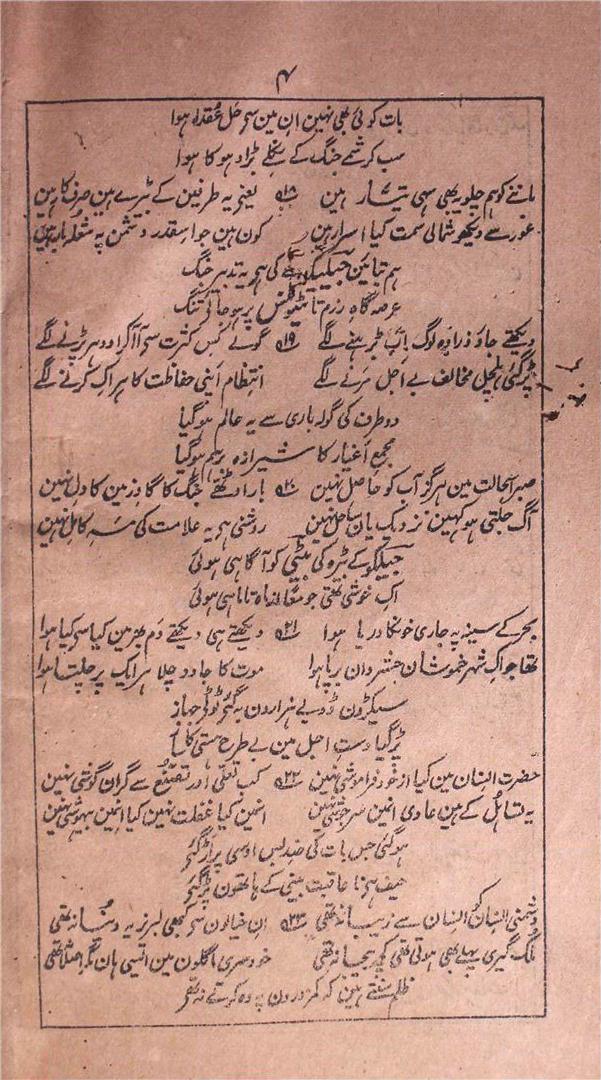 ۴
بات کوئی بھی نہین ان مین سی حل عقدا ہوا
سب کرشمے جنگ کے نکلے بڑا دھوکا ہوا
ماننے کو ہم چلو یہ بھی سہی تیار ہین ۱۸ یعنے یہ طرفین کے بیڑے ہین صرف کار ہین
غور سے دیکھو شمالی سمت کیا اسرار ہین کون ہین جو اسقدر دشمن پہ شعلہ بار ہین
ہم بتائین جیلیکو کی ہی یہ تدبیر جنگ
عرصہ گاہ رزم تا ٹیوٹنس پر ہو جائی تنگ
دیکھتے جاؤ ذرا وہ لوگ اب گھرنے لگے ۱۹ گولے کس کثرت سی آ آ کر ادھر پڑنے لگے
پڑ گئی ہلچل مخالف بے اجل مرنے لگے انتظام اپنی حفاظت کا ہر اک کرنے لگے
دو طرف کی گولہ باری سے یہ عالم ہو گیا
مجمع اغیار کا شیرازہ برہم ہو گیا
صبر اسحالت مین ہرگز آپ کو حاصل نہین ۲۰ بار اٹھے جنگ کا گاؤ زمین کا دل نہین
آگ جلتی ہو کہین نزدیک یان ساحل نہین روشنی ہی یہ علامت کی مہ کامل نہین
جیلیکو کے بیڑہ کی بیٹی کو آگاہی ہوئی
اک خوشی تھی جو معاً ناہ تا ماہی ہوئی
بحر کے سینہ پہ جاری خون کا دریا ہوا ۲۱ دیکھتے ہی دیکھتے دم بھر مین کیا سی کیا ہوا
تھا جو اک شہر خموشان حشر وان برپا ہوا موت کا جادو چلا ہر ایک پر چلتا ہوا
سیکڑون ڈوبے ہزارون بہ گئے ٹوٹی جہاز
پڑ گیا دست اجل مین بے طرح ہستی کا ساز
حضرت انسان مین کیا از خود فراموشی نہین ۲۲ کب تعلی اور تصنع سے گران گوشی نہین
یہ تساہل کے ہین عادی انمین سرجوشی نہین انمین کیا غفلت نہین کیا انمین بیہوشی نہین
ہو گئی جس بات کی ضد بس اوسی پر اڑ گئے
حیف ہے نا عاقبت بینی کے ہاتھون پڑ گئے
دشمنی انسان کو انسان سے زیبا نہ تھی ۲۳ ان خیالون سی کبھی لبریز یہ دنیا نہ تھی
ملک گیری پہلے بھی ہوتی تھی کچھ بیجا نہ تھی خودسری اگلون مین ایسی ہان مگر اصلا نہ تھی
ظلم سنتے ہین کہ کمزورون پہ وہ کرتے نہ تھے